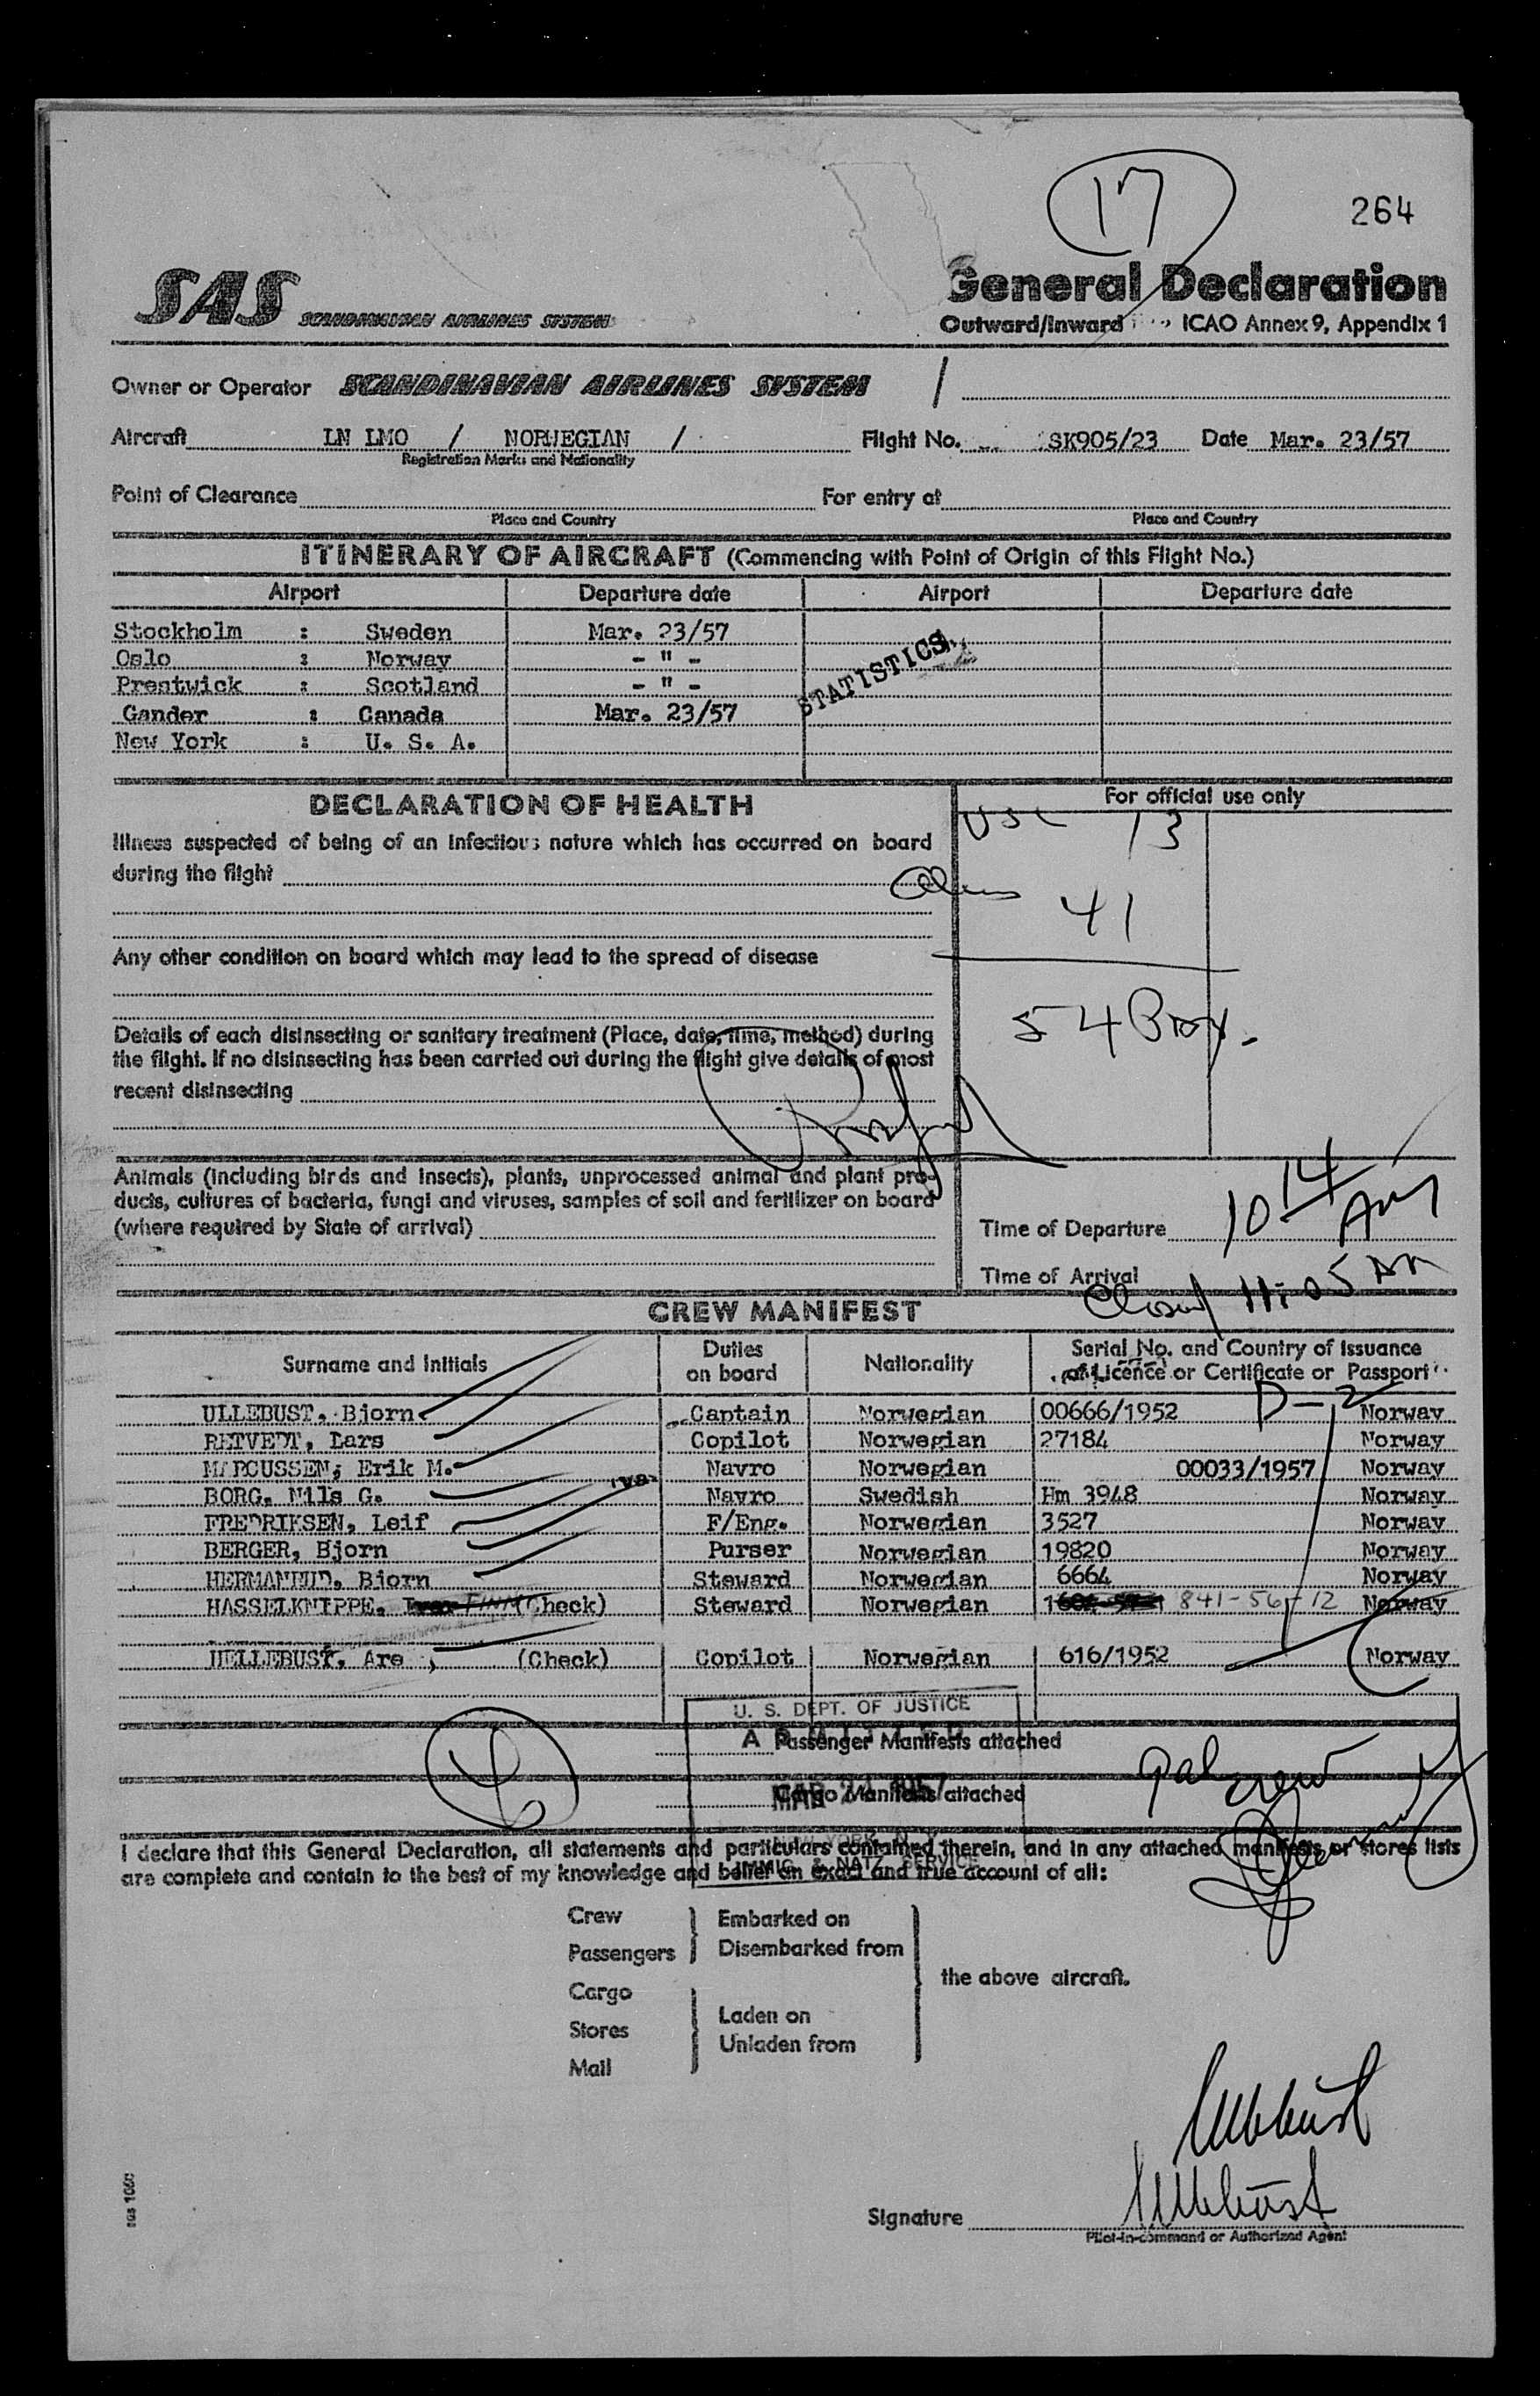 17
264
SAS SCANDINAVIAN AIRLINES SYSTEM
General Declaration
Outward/Inward ICAO Annex 9, Appendix 1
Owner or Operator SCANDINAVIAN AIRLINES SYSTEM /
Aircraft LN LMO / NORWEGIAN / Flight No. SK905/23 Date Mar. 23/57
Registration Marks and Nationality
Point of Clearance For entry at
Place and Country Place and Country
ITINERARY OF AIRCRAFT (Commencing with Point of Origin of this Flight No.)
Airport Departure date Airport Departure date
Stockholm : Sweden Mar. 23/57
Oslo : Norway - " -
Prestwick : Scotland - " -
STATISTICS
Gander : Canada Mar. 23/57
New York : U. S. A.
DECLARATION OF HEALTH
For official use only
Illness suspected of being of an infectious nature which has occurred on board
during the flight
USC 13
Aliens 41
54
Any other condition on board which may lead to the spread of disease
Details of each disinsecting or sanitary treatment (Place, date, time, method) during
the flight. If no disinsecting has been carried out during the flight give details of most
recent disinsecting
Animals (including birds and insects), plants, unprocessed animal and plant pro-
ducts, cultures of bacteria, fungi and viruses, samples of soil and fertilizer on board
(where required by State of arrival)
Time of Departure 10 14 AM
Time of Arrival
Closed 11:05 AM
CREW MANIFEST
Surname and Initials Duties on board Nationality Serial No. and Country of Issuance of Licence or Certificate or Passport
D-2
ULLEBUST, Bjorn Captain Norwegian 00666/1952 Norway
RETVEDT, Lars Copilot Norwegian 27184 Norway
MARCUSSEN, Erik M. Navro Norwegian 00033/1957 Norway
BORG. Nils G. Navro Swedish Hm 3948 Norway
FREDRIKSEN, Leif F/Eng. Norwegian 3527 Norway
BERGER, Bjorn Purser Norwegian 19820 Norway
HERMANRUD, Bjorn Steward Norwegian 6664 Norway
HASSELKNIPPE, FINN (Check) Steward Norwegian 841-56-12 Norway
HELLEBUST, Are , (Check) Copilot Norwegian 616/1952 Norway
U. S. DEPT. OF JUSTICE
ADMITTED
Passenger Manifests attached
MAR 24 1957
Cargo Manifests attached
NEW YORK, N.Y.
IMMIG. & NATZ. SERVICE
I declare that this General Declaration, all statements and particulars contained therein, and in any attached manifests or stores lists
are complete and contain to the best of my knowledge and belief an exact and true account of all:
Crew
Passengers
Embarked on
Disembarked from
Cargo
Stores
Mail
Laden on
Unladen from
the above aircraft.
Ullebust
Signature Ullebust
Pilot-in-command or Authorized Agent